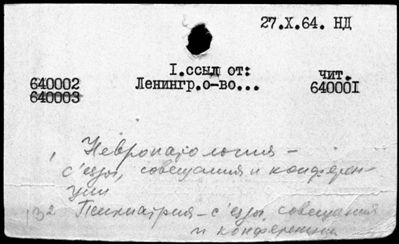 27.X.64. НД
1.ссыл от: чит.
640002 Ленингр.о-во... 640001
640003
1 Невропатология –
с'езды, совещания и конферен-
ции
32 Психиатрия – с'езды, совещания
и конференции